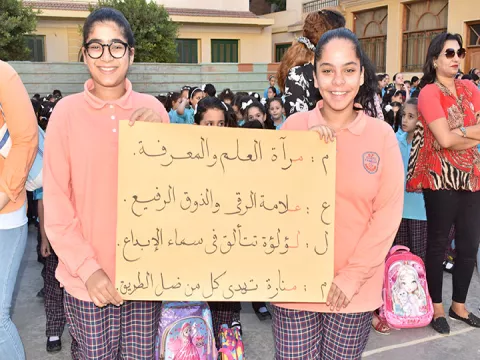 م : مرآة العلم والمعرفة.
ع : علامة الرقى والذوق الرفيع.
ل : لؤلؤة تتألق فى سماء الإبداع.
م : منارة تهدى كل من ضل الطريق.